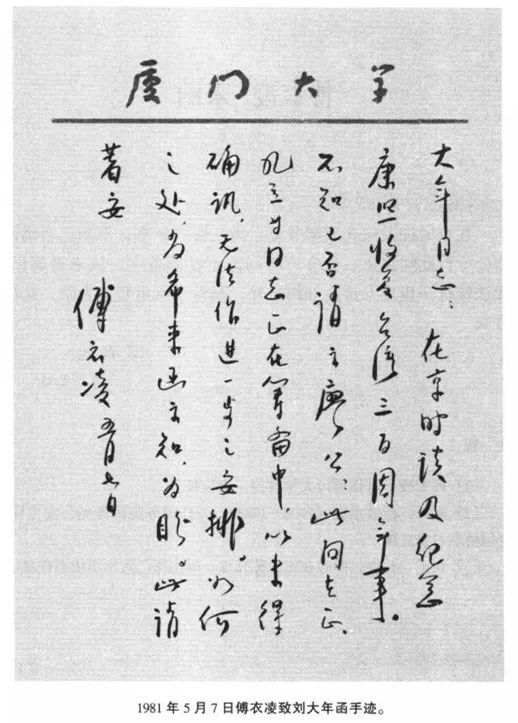 厦门大学
大年同志：在京时谈及纪念
康熙收复台湾三百周年事。
不知已否请示廖公，此间
孔立等同志正在筹备中，以未得
确讯，无法作进一步之安排。如何
之处，尚希来函示知，为盼。此请
著安
傅衣凌 五月七日
1981年5月7日傅衣凌致刘大年函手迹。